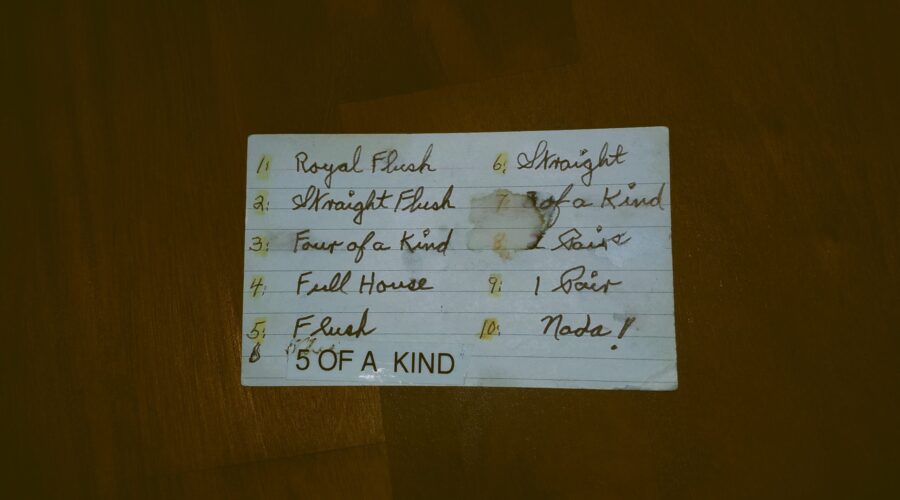 1: Royal Flush
2: Straight Flush
3: Four of a Kind
4: Full House
5: Flush
5 OF A KIND
6: Straight
7 of a Kind
8: Pairs
9: 1 Pair
10: Nada!